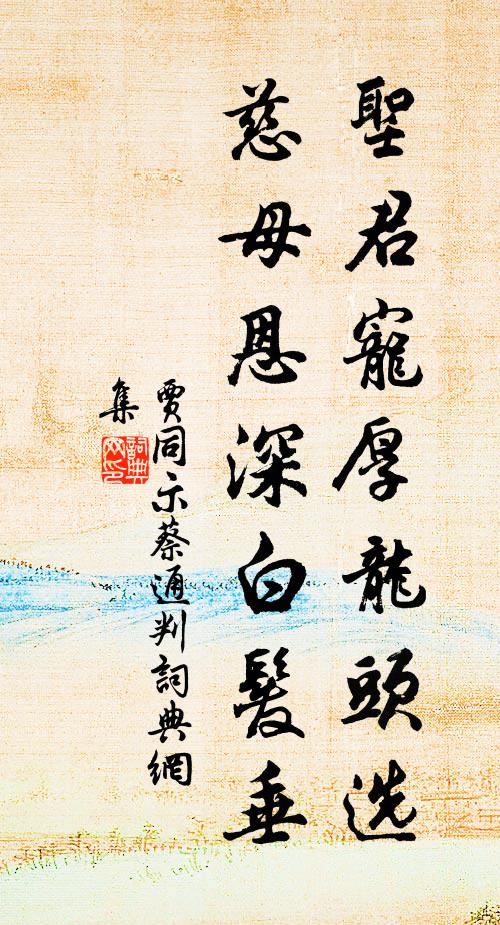 聖君寵厚龍頭选
慈母恩深白髮垂
賈同示蔡通判詞典網
集
詞典
网印